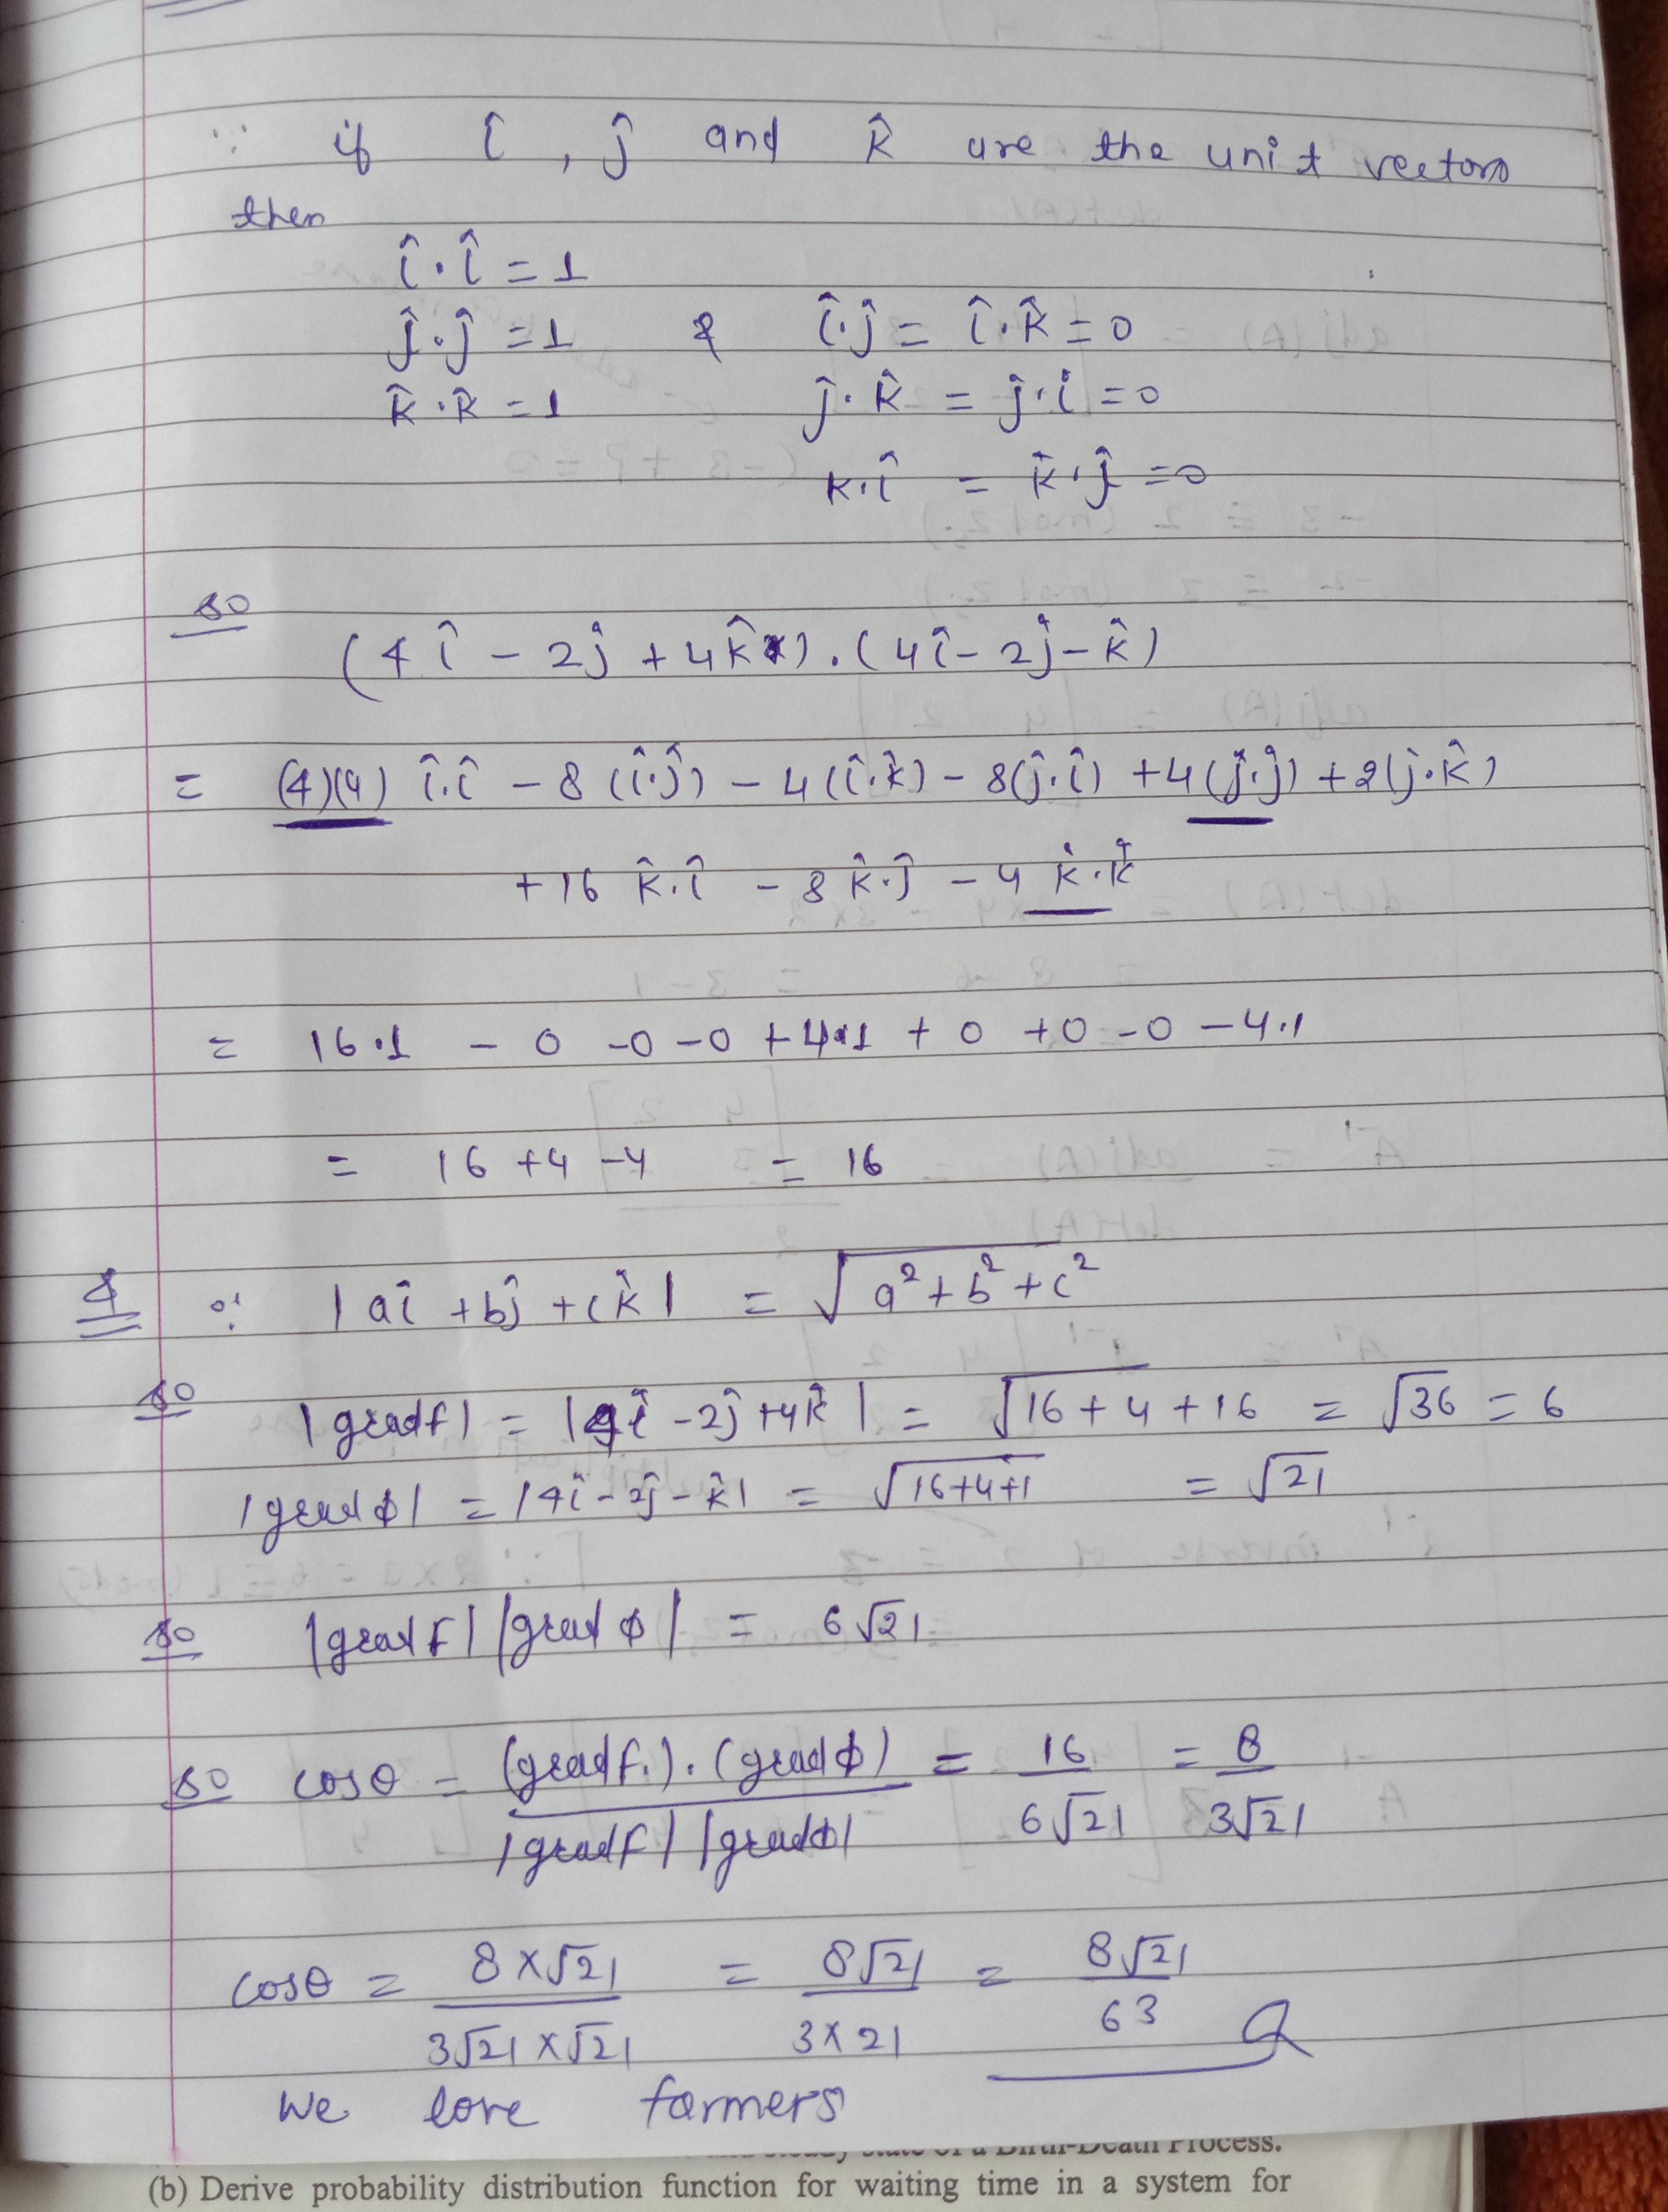 ∵ if î , ĵ and k̂ are the unit vectors
then
î·î = 1
ĵ·ĵ = 1 & î·ĵ = î·k̂ = 0
k̂·k̂ = 1 ĵ·k̂ = ĵ·î = 0
k·î = k̂·ĵ = 0
so
(4î - 2ĵ + 4k̂).(4î - 2ĵ - k̂)
= (4)(4) î·î - 8(î·ĵ) - 4(î·k̂) - 8(ĵ·î) + 4(ĵ·ĵ) + 2(ĵ·k̂)
+ 16 k̂·î - 8 k̂·ĵ - 4 k̂·k̂
= 16·1 - 0 - 0 - 0 + 4·1 + 0 + 0 - 0 - 4·1
= 16 + 4 - 4 = 16
& ∵ |aî + bĵ + ck̂| = √(a² + b² + c²)
so |grad f| = |4î - 2ĵ + 4k̂| = √(16 + 4 + 16) = √36 = 6
|grad φ| = |4î - 2ĵ - k̂| = √(16+4+1) = √21
so |grad f| |grad φ| = 6√21
so cosθ = (grad f.).(grad φ) / |grad f| |grad φ| = 16 / 6√21 = 8 / 3√21
cosθ = 8×√21 / 3√21×√21 = 8√21 / 3×21 = 8√21 / 63
We love farmers
of a Birth-Death Process.
(b) Derive probability distribution function for waiting time in a system for